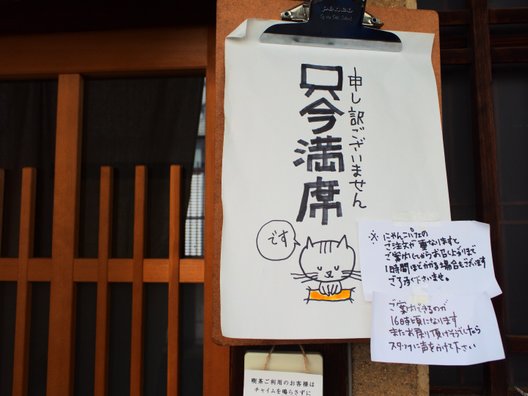 申し訳ございません
只今満席
です
※ にゃんこパフェの
ご注文が重なりますと
ご案内してからお召し上がりまで
1時間ほどかかる場合もございます
ご了承くださいませ。
ご案内できるのが
16時頃になります
またお戻り頂けそうでしたら
スタッフに声をかけて下さい
喫茶ご利用のお客様は
チャイムを鳴らさずに